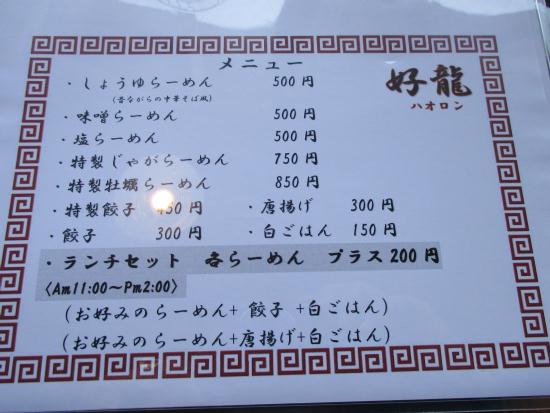 メニュー
好龍
ハオロン
・しょうゆらーめん 500円
(昔ながらの中華そば風)
・味噌らーめん 500円
・塩らーめん 500円
・特製じゃがらーめん 750円
・特製牡蠣らーめん 850円
・特製餃子 450円 ・唐揚げ 300円
・餃子 300円 ・白ごはん 150円
・ランチセット 各らーめん プラス200円
〈Am11:00～Pm2:00〉
(お好みのらーめん+ 餃子 +白ごはん)
(お好みのらーめん+唐揚げ+白ごはん)